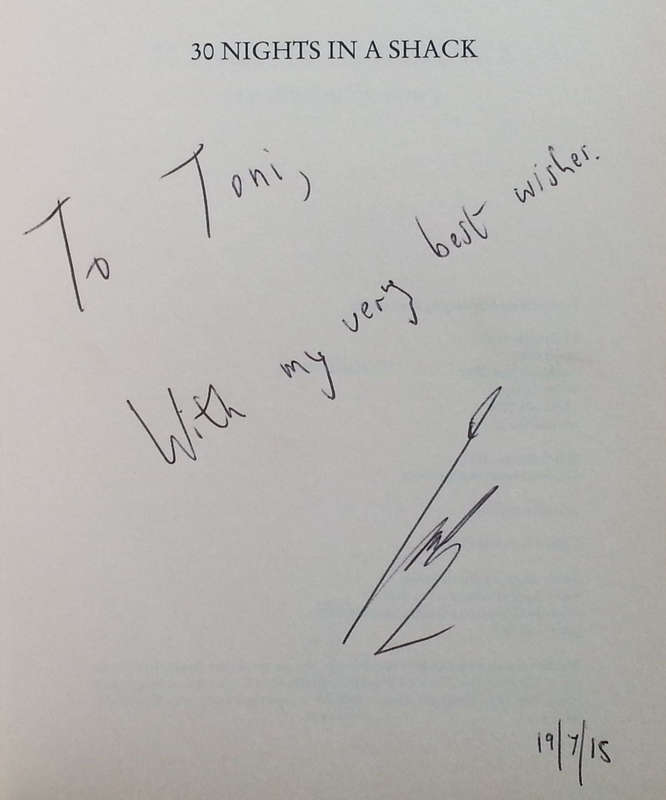 30 NIGHTS IN A SHACK
To Toni,
With my very best wishes.
19/7/15